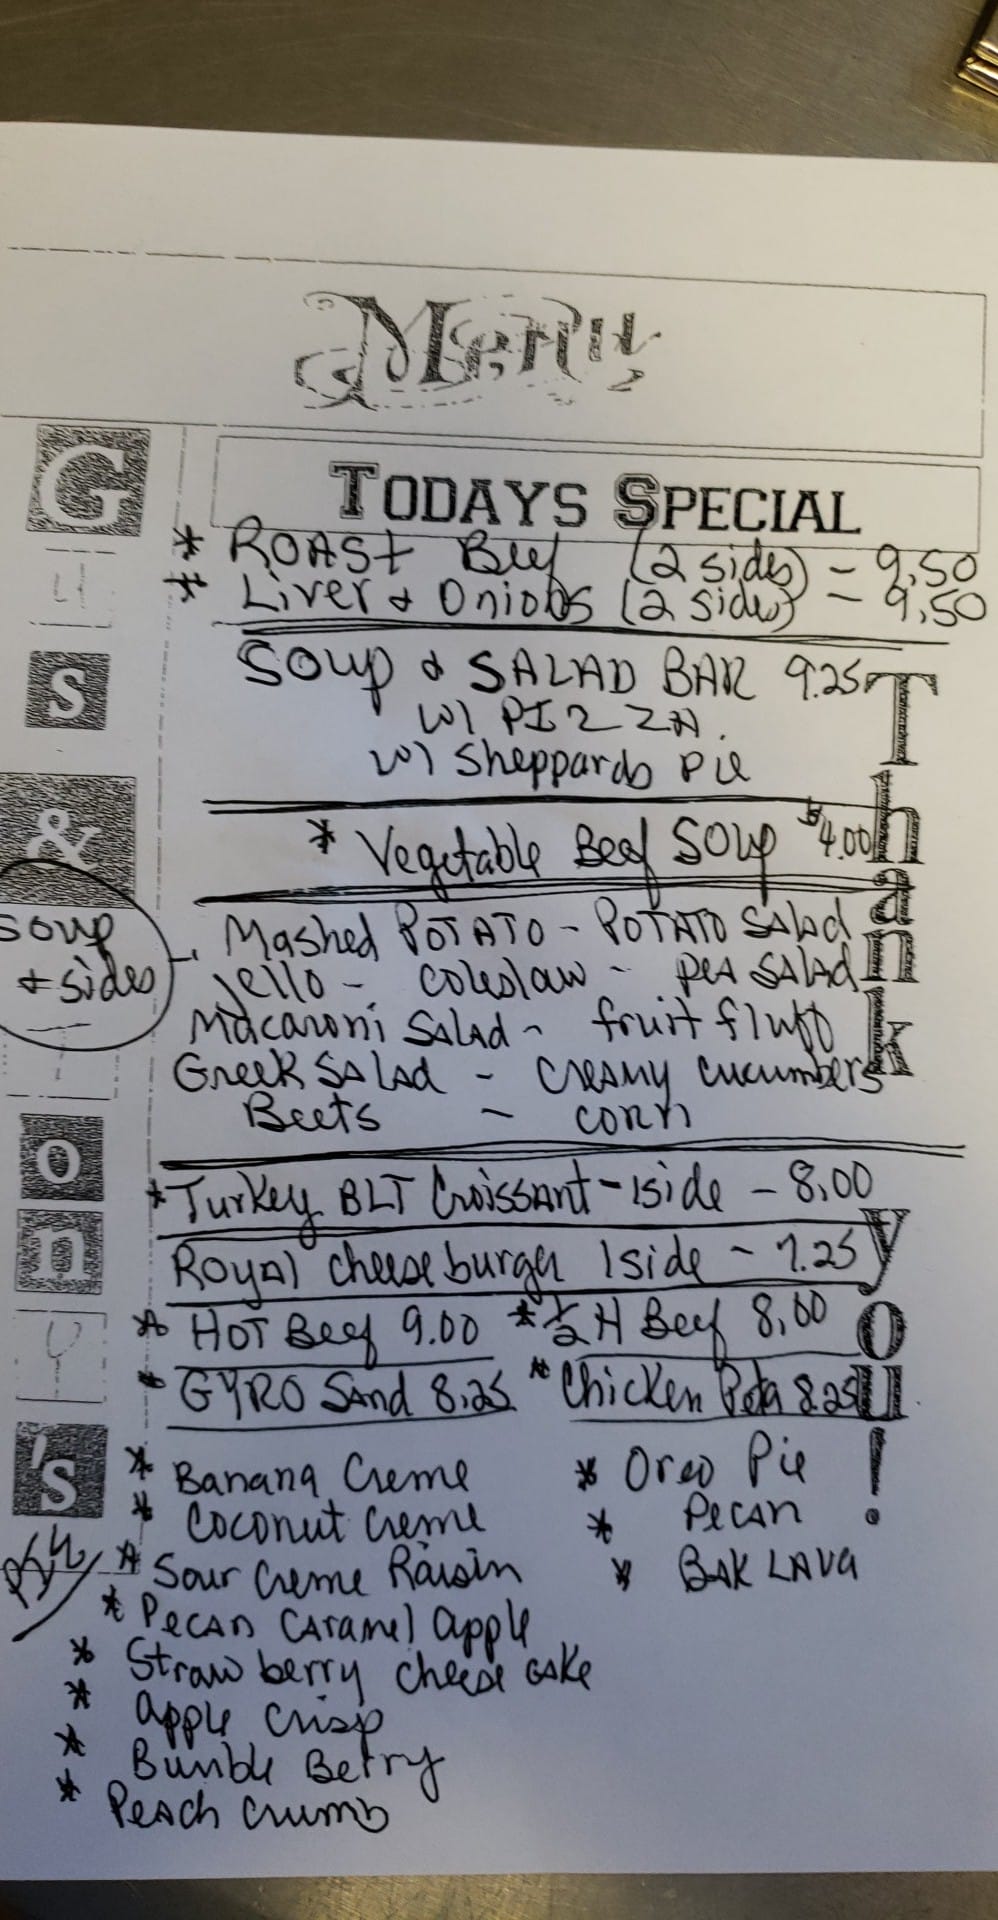 Menu
TODAYS SPECIAL
* ROAST Beef (2 sides) - 9.50
* Liver & Onions (2 sides) - 9.50
SOUP & SALAD BAR 9.25
W/ PIZZA.
W/ Sheppards Pie
* Vegetable Beef SOUP $4.00
Soup
& sides
Mashed POTATO - POTATO SALAD
Jello - coleslaw - peA SALAD
Macaroni SALAD - fruit fluff
Greek SALAD - CREAMY cucumbers
Beets - corn
* Turkey BLT Croissant - 1side - 8.00
Royal cheeseburger 1side - 7.25
* HOT Beef 9.00 * 1/2 H Beef 8.00
* GYRO Sand 8.25 * Chicken Pita 8.25
* Banana Creme * Oreo Pie
* Coconut Creme * PecAn
* Sour Creme Raisin * BAKLAVA
* PecAn CArAmel apple
* Strawberry cheesecake
* apple crisp
* Bumble Berry
* PeAch crumb
G
u
s
&
T
o
n
y
's
Thank
you!